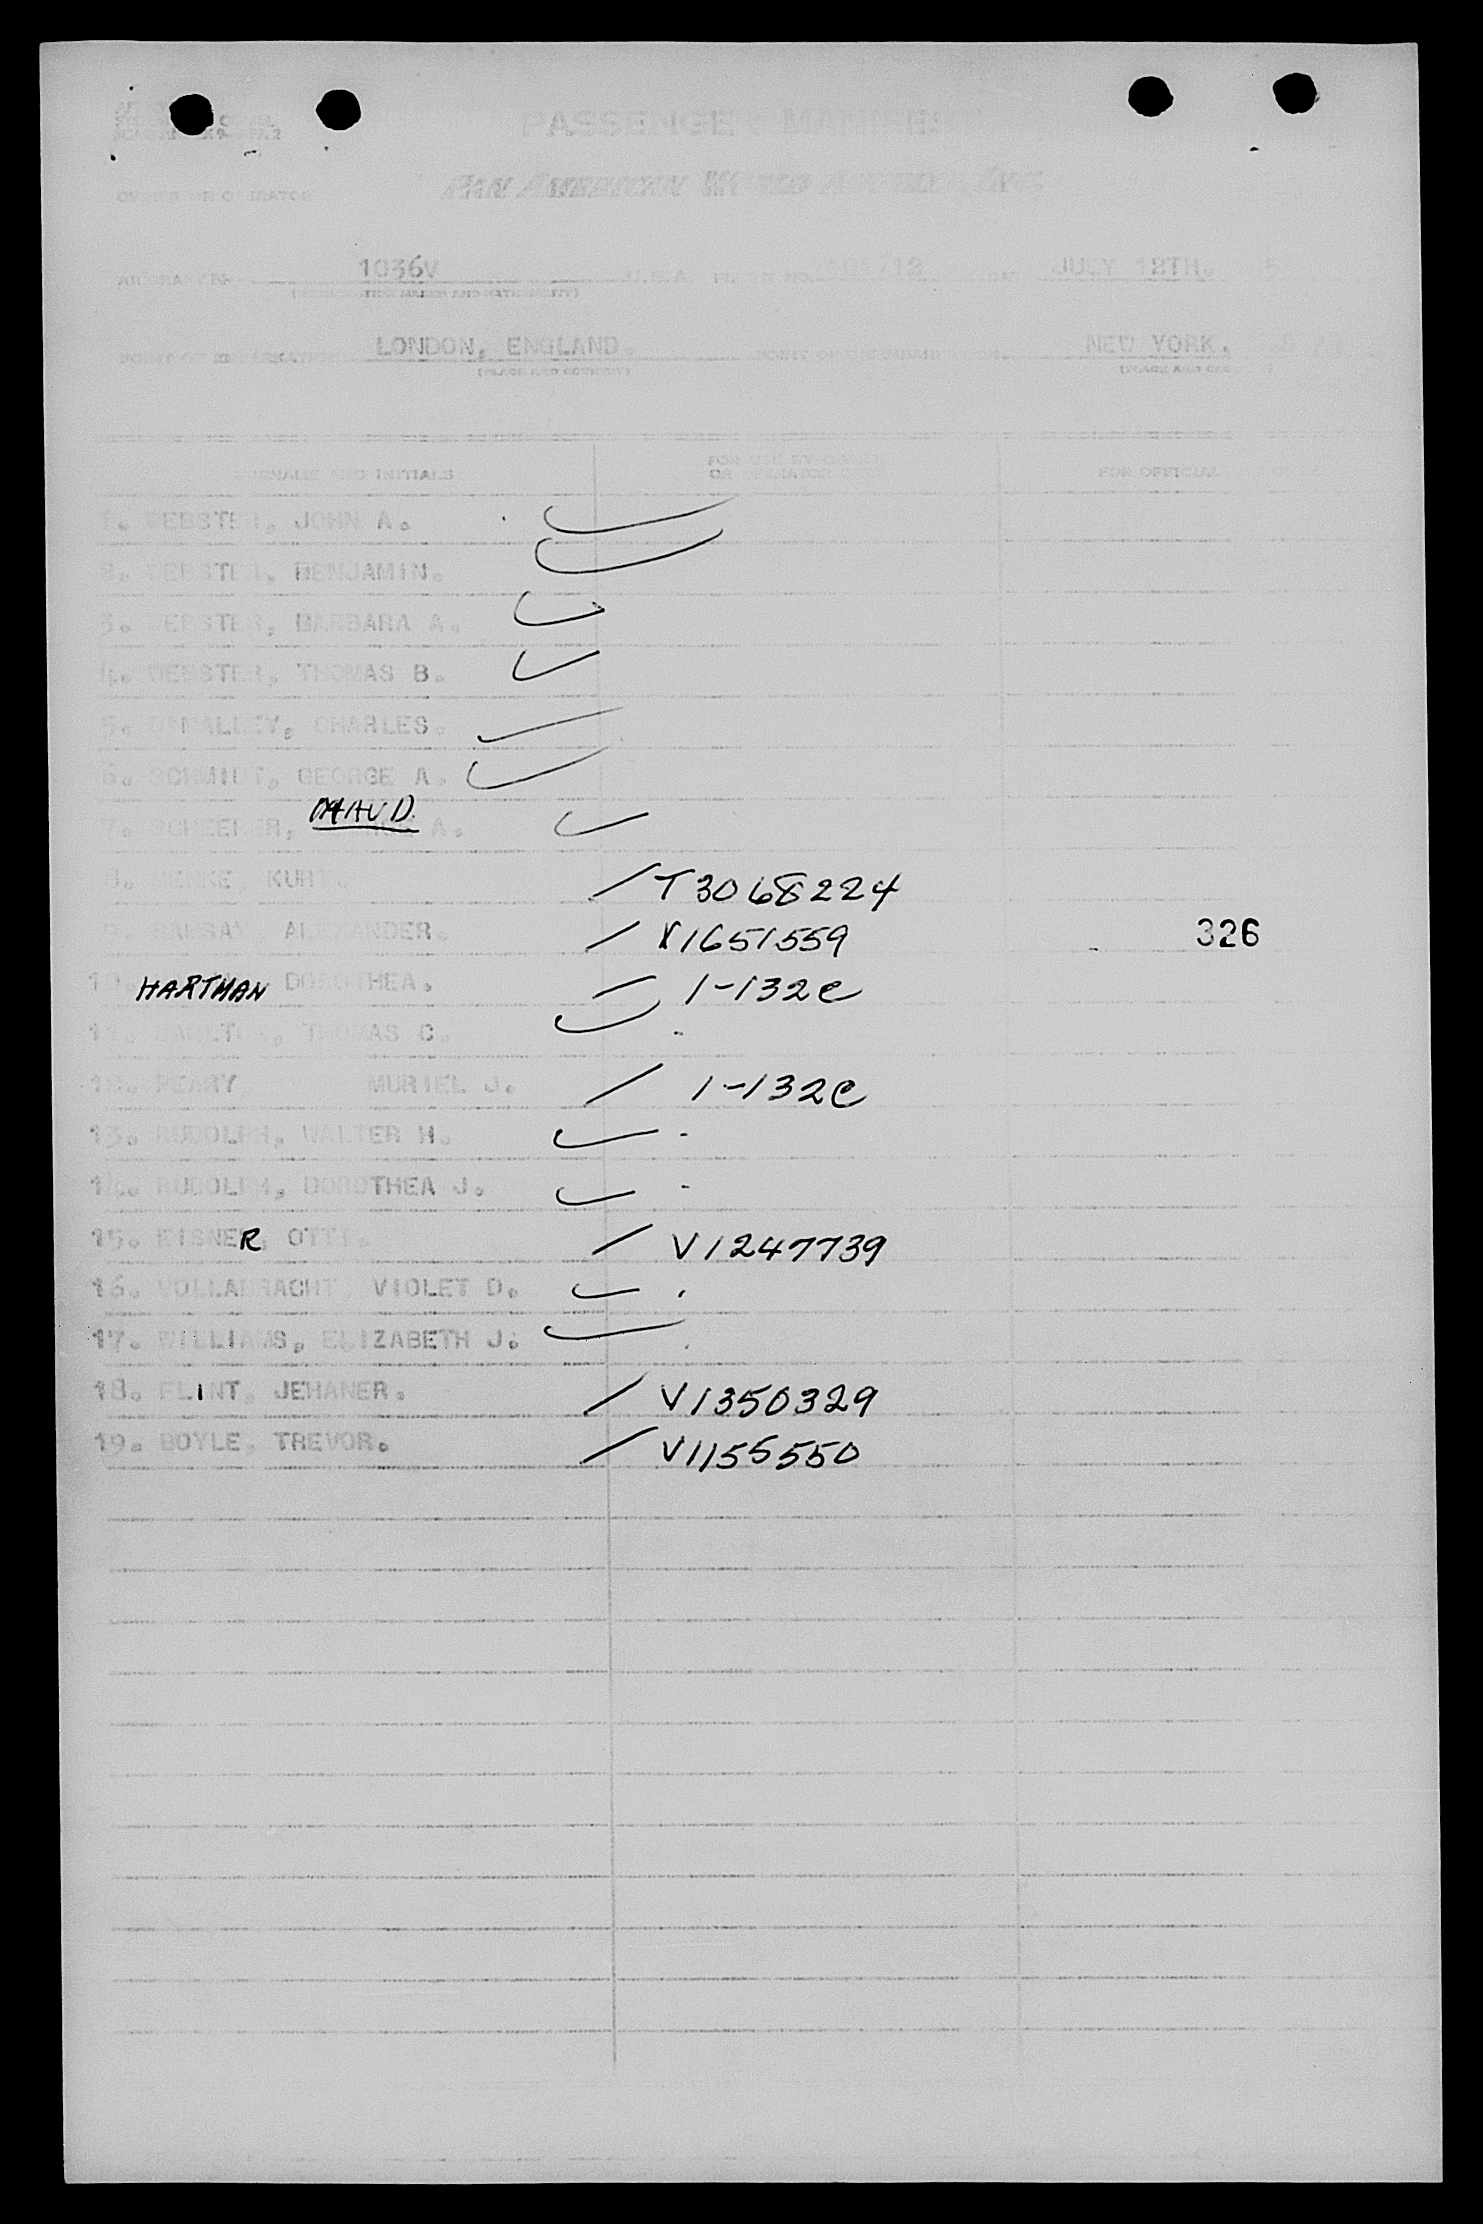 PASSENGER MANIFEST
OWNER OR OPERATOR PAN AMERICAN WORLD AIRWAYS, INC.
1036V U.S.A. FLIGHT NO. JULY 12TH.
LONDON, ENGLAND. NEW YORK,
(PLACE AND COUNTRY) (PLACE AND COUNTRY)
SURNAME AND INITIALS FOR USE BY OWNER OR OPERATOR ONLY FOR OFFICIAL USE ONLY
1. WEBSTER, JOHN A.
2. WEBSTER, BENJAMIN.
3. WEBSTER, BARBARA A.
4. WEBSTER, THOMAS B.
5. CHARLES.
6. SCHMIDT, GEORGE A.
MAUD.
7. A.
8. KURT. T3068224
9. RAMSAY, ALEXANDER. V1651559 326
10. HARTMAN DOROTHEA. 1-132C
11. THOMAS C.
12. PEARY MURIEL J. 1-132C
13. RUDOLPH, WALTER H.
14. RUDOLPH, DOROTHEA J.
15. EISNER, V1247739
16. VOLLABRACHT, VIOLET D.
17. WILLIAMS, ELIZABETH J.
18. FLINT, JEHANER. V1350329
19. BOYLE, TREVOR. V1155550